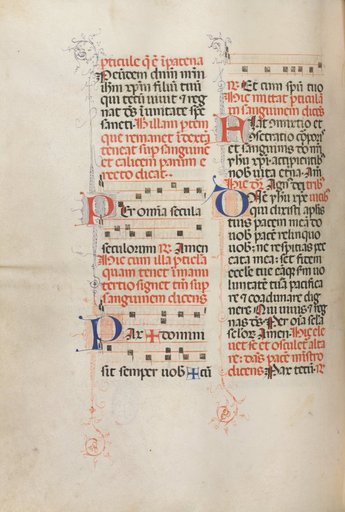 pticule q̄ ē ı̄ patena
Per eundem dnm nrm
ihm xpm filiu tuū
qui tecū uiuit ⁊ reg
nat ds̄ ī unitate sps̄
sancti. Illam ptem
que remanet ī dextā
teneat sup sanguinē
et calicem parum e
recto dicat.
Per omia secula
seculorum ℟ Amen
Hic cum illa pticla
quam tenet ī manu
tertio signet tm̄ sup
sanguinem dicens
Pax ✠ domini
sit semper uob ✠ cū
℟ Et cum spū tuo
Hic mittat pticulā
in sanguinem dices
Hec cōmixtio et
cōsecratio corporis
et sanguinis dn̄i nr̄i
yhu xpi accipientib
nob uita etna. Am
Hic dr̄ Agn dei
Dne yhu xpe
qui dixisti aplis
tuis pacem mea do
uob pacē relinquo
uob: ne respicias pec
cata mea: set fidem
ecclie tue eāqʒ scdm uo
luntatē tuā pacifica
re ⁊ coadunare dig
neris. Qui uiuis ⁊ reg
nas ds̄ Per oīa secla
seclor Amen. Hic ele
uet se et osculet alta
re: dans pacē mistro
dicens. Pax tecū. ℟